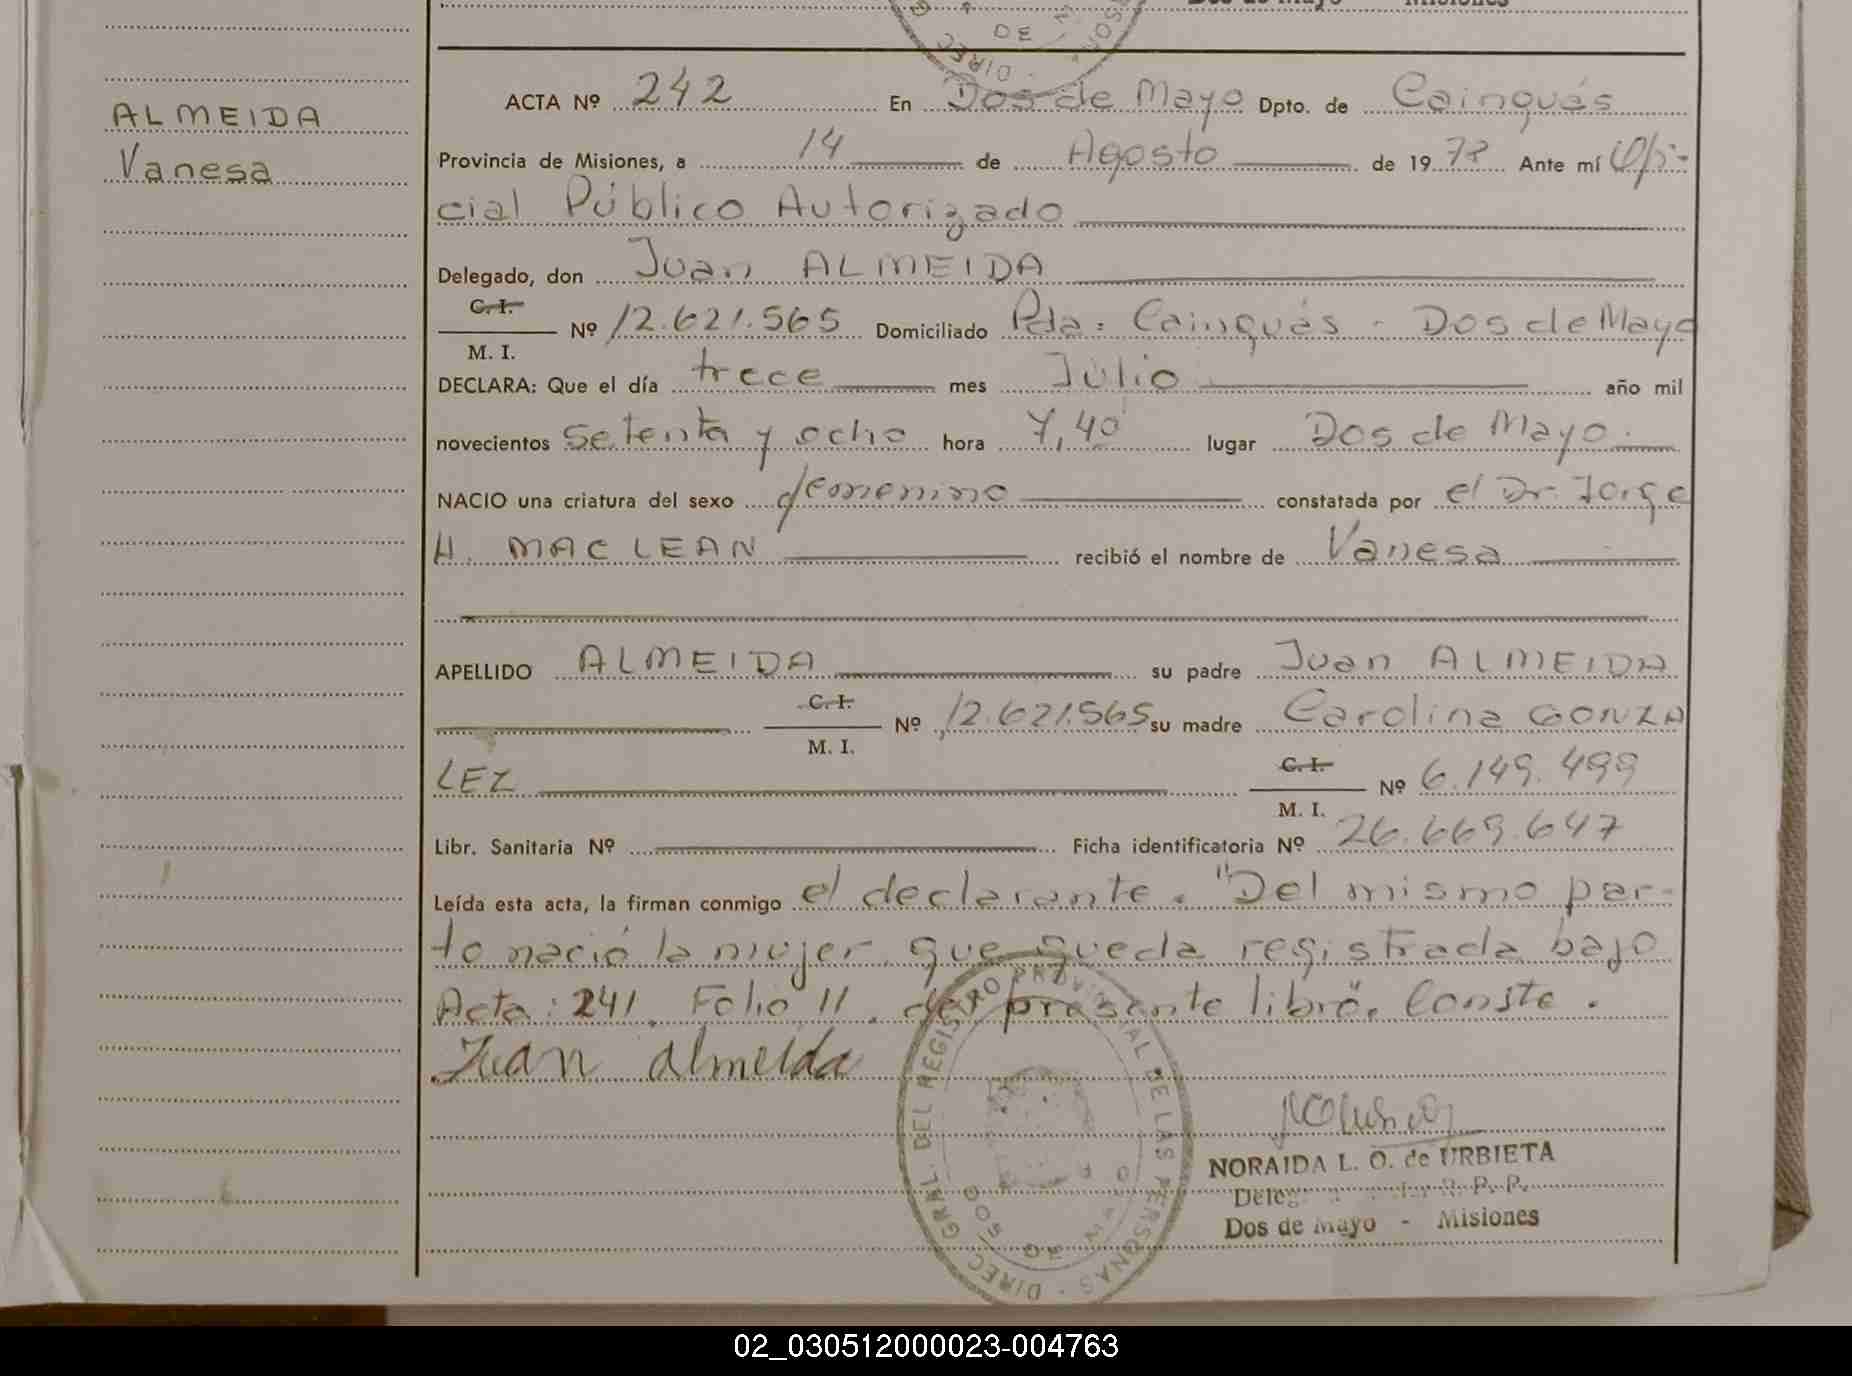 Dos de Mayo Misiones
ALMEIDA
Vanesa
ACTA Nº 242 En Dos de Mayo Dpto. de Cainguás
Provincia de Misiones, a 14 de Agosto de 1978 Ante mí Ofi-
cial Público Autorizado
Delegado, don Juan ALMEIDA
C. I.
M. I.
Nº 12.621.565 Domiciliado Pda: Cainguás - Dos de Mayo
DECLARA: Que el día trece mes Julio año mil
novecientos setenta y ocho hora 7,40 lugar Dos de Mayo.
NACIO una criatura del sexo femenino constatada por el Dr. Jorge
H. MAC LEAN recibió el nombre de Vanesa
APELLIDO ALMEIDA su padre Juan ALMEIDA
C. I.
M. I.
Nº 12.621.565 su madre Carolina GONZA
LEZ
C. I.
M. I.
Nº 6.149.499
Libr. Sanitaria Nº Ficha identificatoria Nº 26.669.647
Leída esta acta, la firman conmigo el declarante. "Del mismo par-
to nació la mujer que queda registrada bajo
Acta: 241. Folio 11. del presente libro". Conste.
Juan almeida
DIREC. GRAL. DEL REGISTRO PROVINCIAL DE LAS PERSONAS
NORAIDA L. O. de URBIETA
R. P. P.
Dos de Mayo - Misiones
02_030512000023-004763